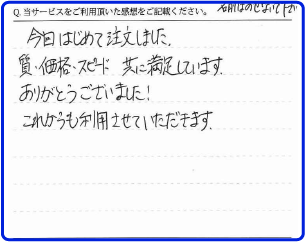 Q.当サービスをご利用頂いた感想をご記載ください。 名前はのせないで下さい
今回はじめて注文しました。
質・価格・スピード 共に満足しています。
ありがとうございました!
これからも利用させていただきます。